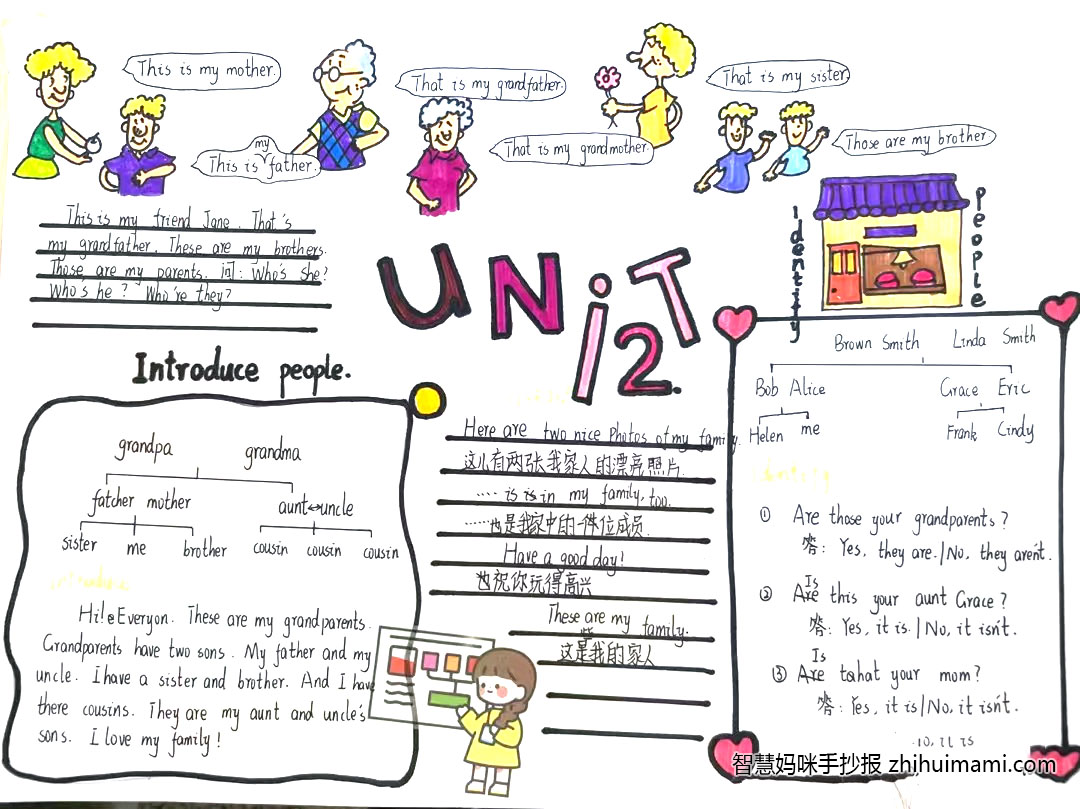 This is my mother.
This is my father.
That is my grandfather.
That is my grandmother.
That is my sister.
Those are my brother
This is my friend Jane. That's
my grandfather. These are my brothers.
Those are my parents. 问: Who's she?
Who's he? Who're they?
UNiT 2.
identity
people
Introduce people.
grandpa grandma
fatcher mother aunt↔uncle
sister me brother cousin cousin cousin
introduce
Hi! Everyon. These are my grandparents.
Grandparents have two sons. My father and my
uncle. I have a sister and brother. And I have
there cousins. They are my aunt and uncle's
sons. I love my family!
Here are two nice Photos of my family.
这儿有两张我家人的漂亮照片.
.... is is in my family, too.
......也是我家中的一件位成员.
Have a good day!
也祝你玩得高兴
These are my family.
这些是我的家人
Brown Smith Linda Smith
Bob Alice Grace Eric
Helen me Frank Cindy
identity
① Are those your grandparents?
答: Yes, they are./No, they aren't.
② Are Is this your aunt Grace?
答: Yes, it is./No, it isn't.
③ Are Is tahat your mom?
答: Yes, it is/No, it isn't.
智慧妈咪手抄报 zhihuimami.com